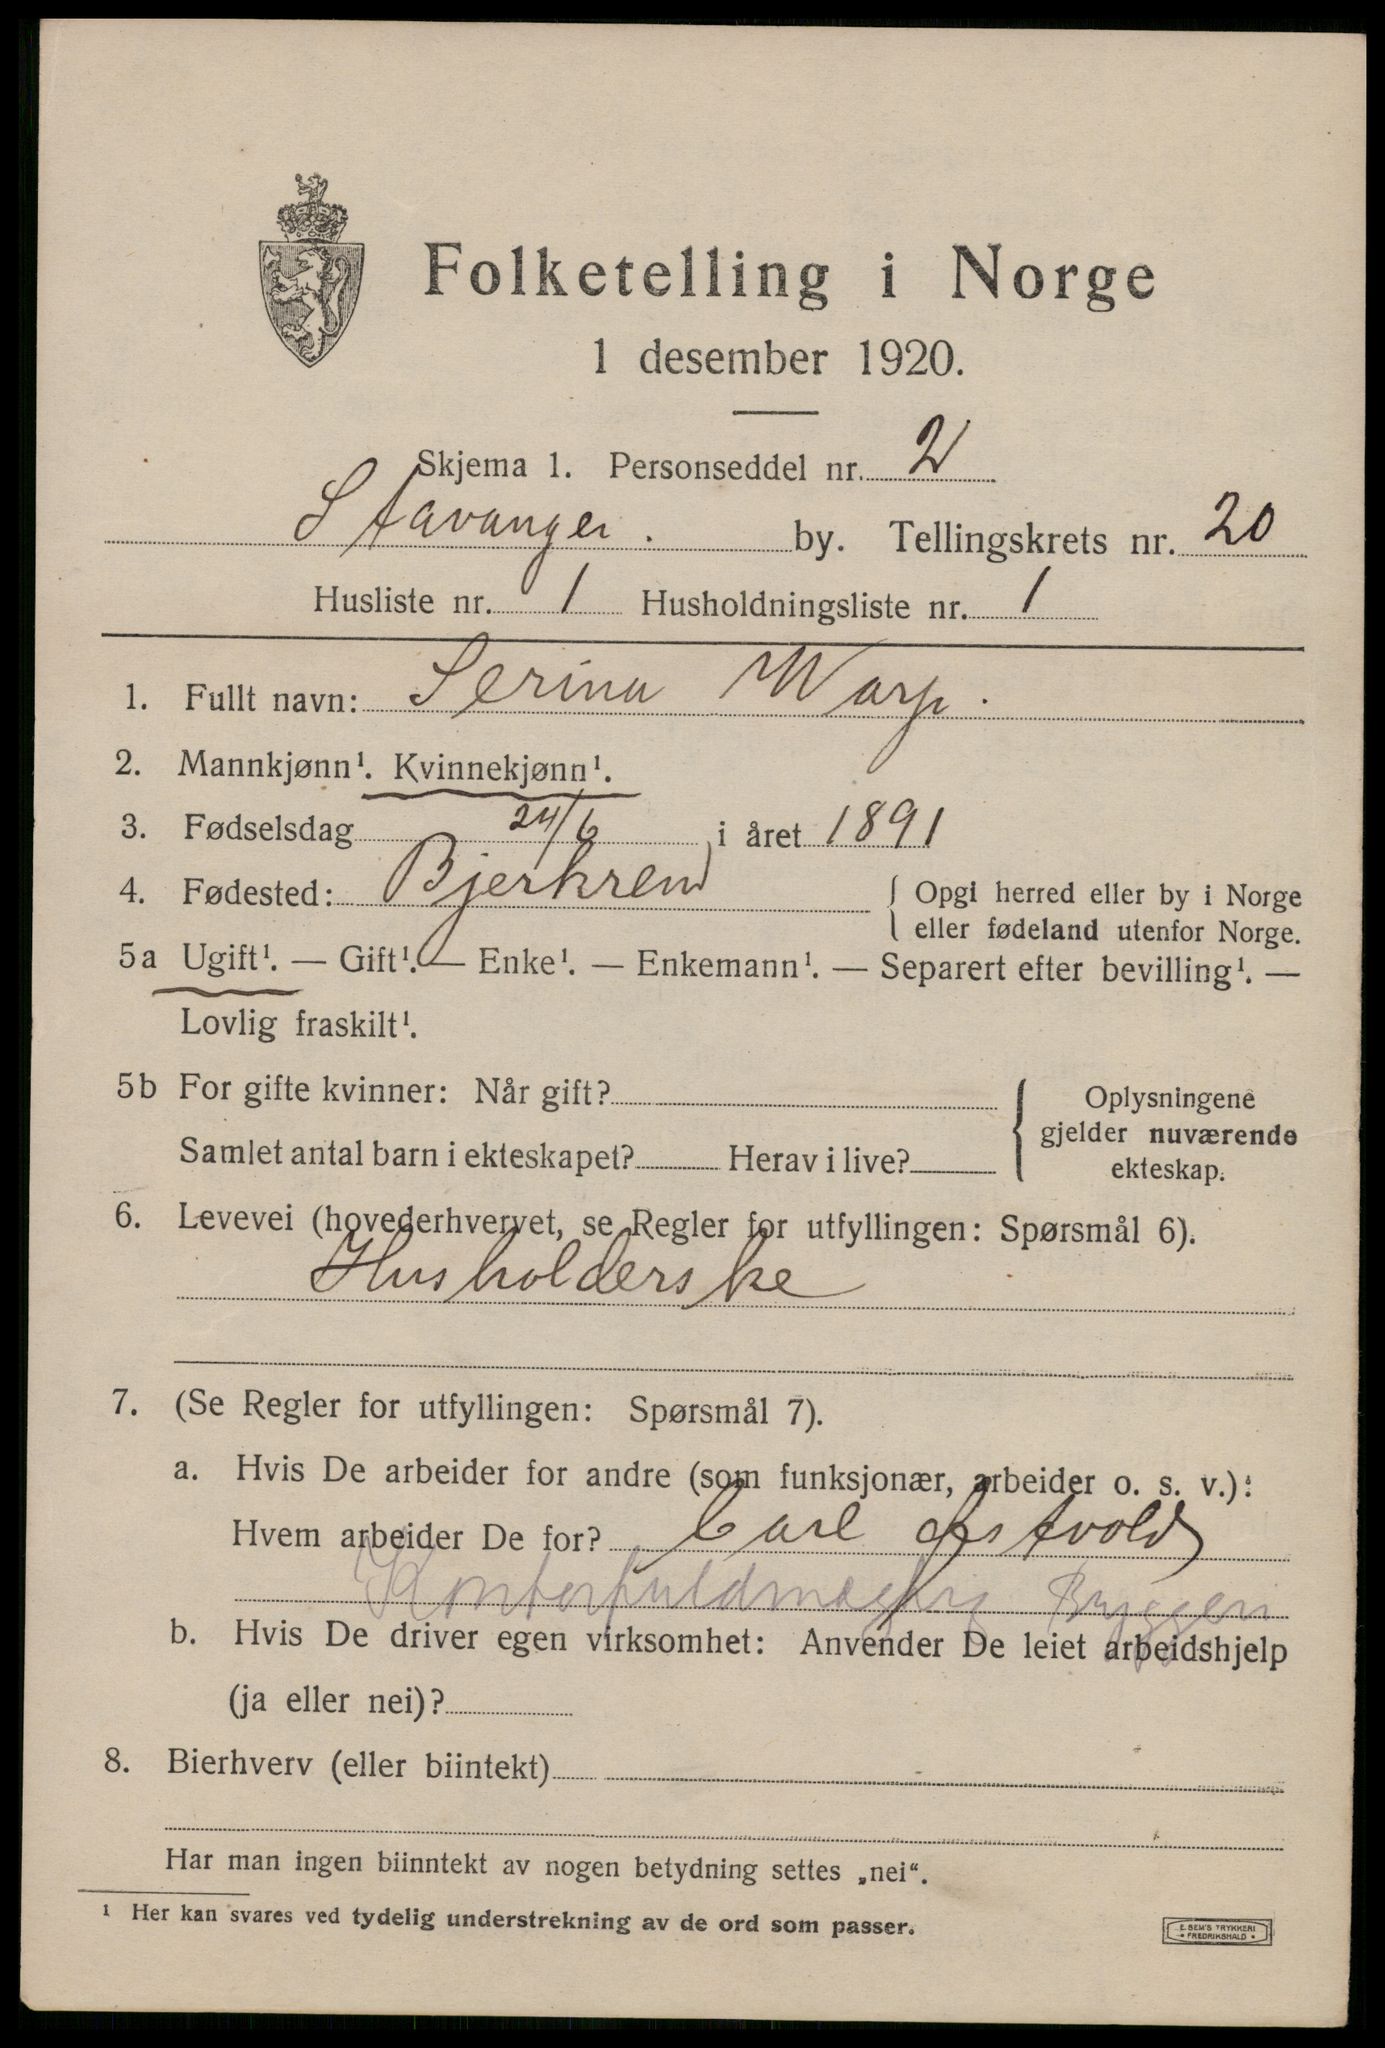 Folketelling i Norge
1 desember 1920.
Skjema 1. Personseddel nr. 2
Stavanger. by. Tellingskrets nr. 20
Husliste nr. 1 Husholdningsliste nr. 1
1. Fullt navn: Serina Warp.
2. Mannkjønn¹. Kvinnekjønn¹.
3. Fødselsdag 24/6 i året 1891
4. Fødested: Bjerkrem { Opgi herred eller by i Norge
eller fødeland utenfor Norge.
5a Ugift¹. — Gift¹. — Enke¹. — Enkemann¹. — Separert efter bevilling¹. —
Lovlig fraskilt¹.
5b For gifte kvinner: Når gift? { Oplysningene
gjelder nuværende
Samlet antal barn i ekteskapet? Herav i live?
ekteskap.
6. Levevei (hovederhvervet, se Regler for utfyllingen: Spørsmål 6).
Husholderske
7. (Se Regler for utfyllingen: Spørsmål 7).
a. Hvis De arbeider for andre (som funksjonær, arbeider o. s. v.):
Hvem arbeider De for? Carl
Kontorfuldmægtig
b. Hvis De driver egen virksomhet: Anvender De leiet arbeidshjelp
(ja eller nei)?
8. Bierhverv (eller biintekt)
Har man ingen biinntekt av nogen betydning settes „nei“.
¹ Her kan svares ved tydelig understrekning av de ord som passer.
E. SEM'S TRYKKERI
• FREDRIKSHALD •